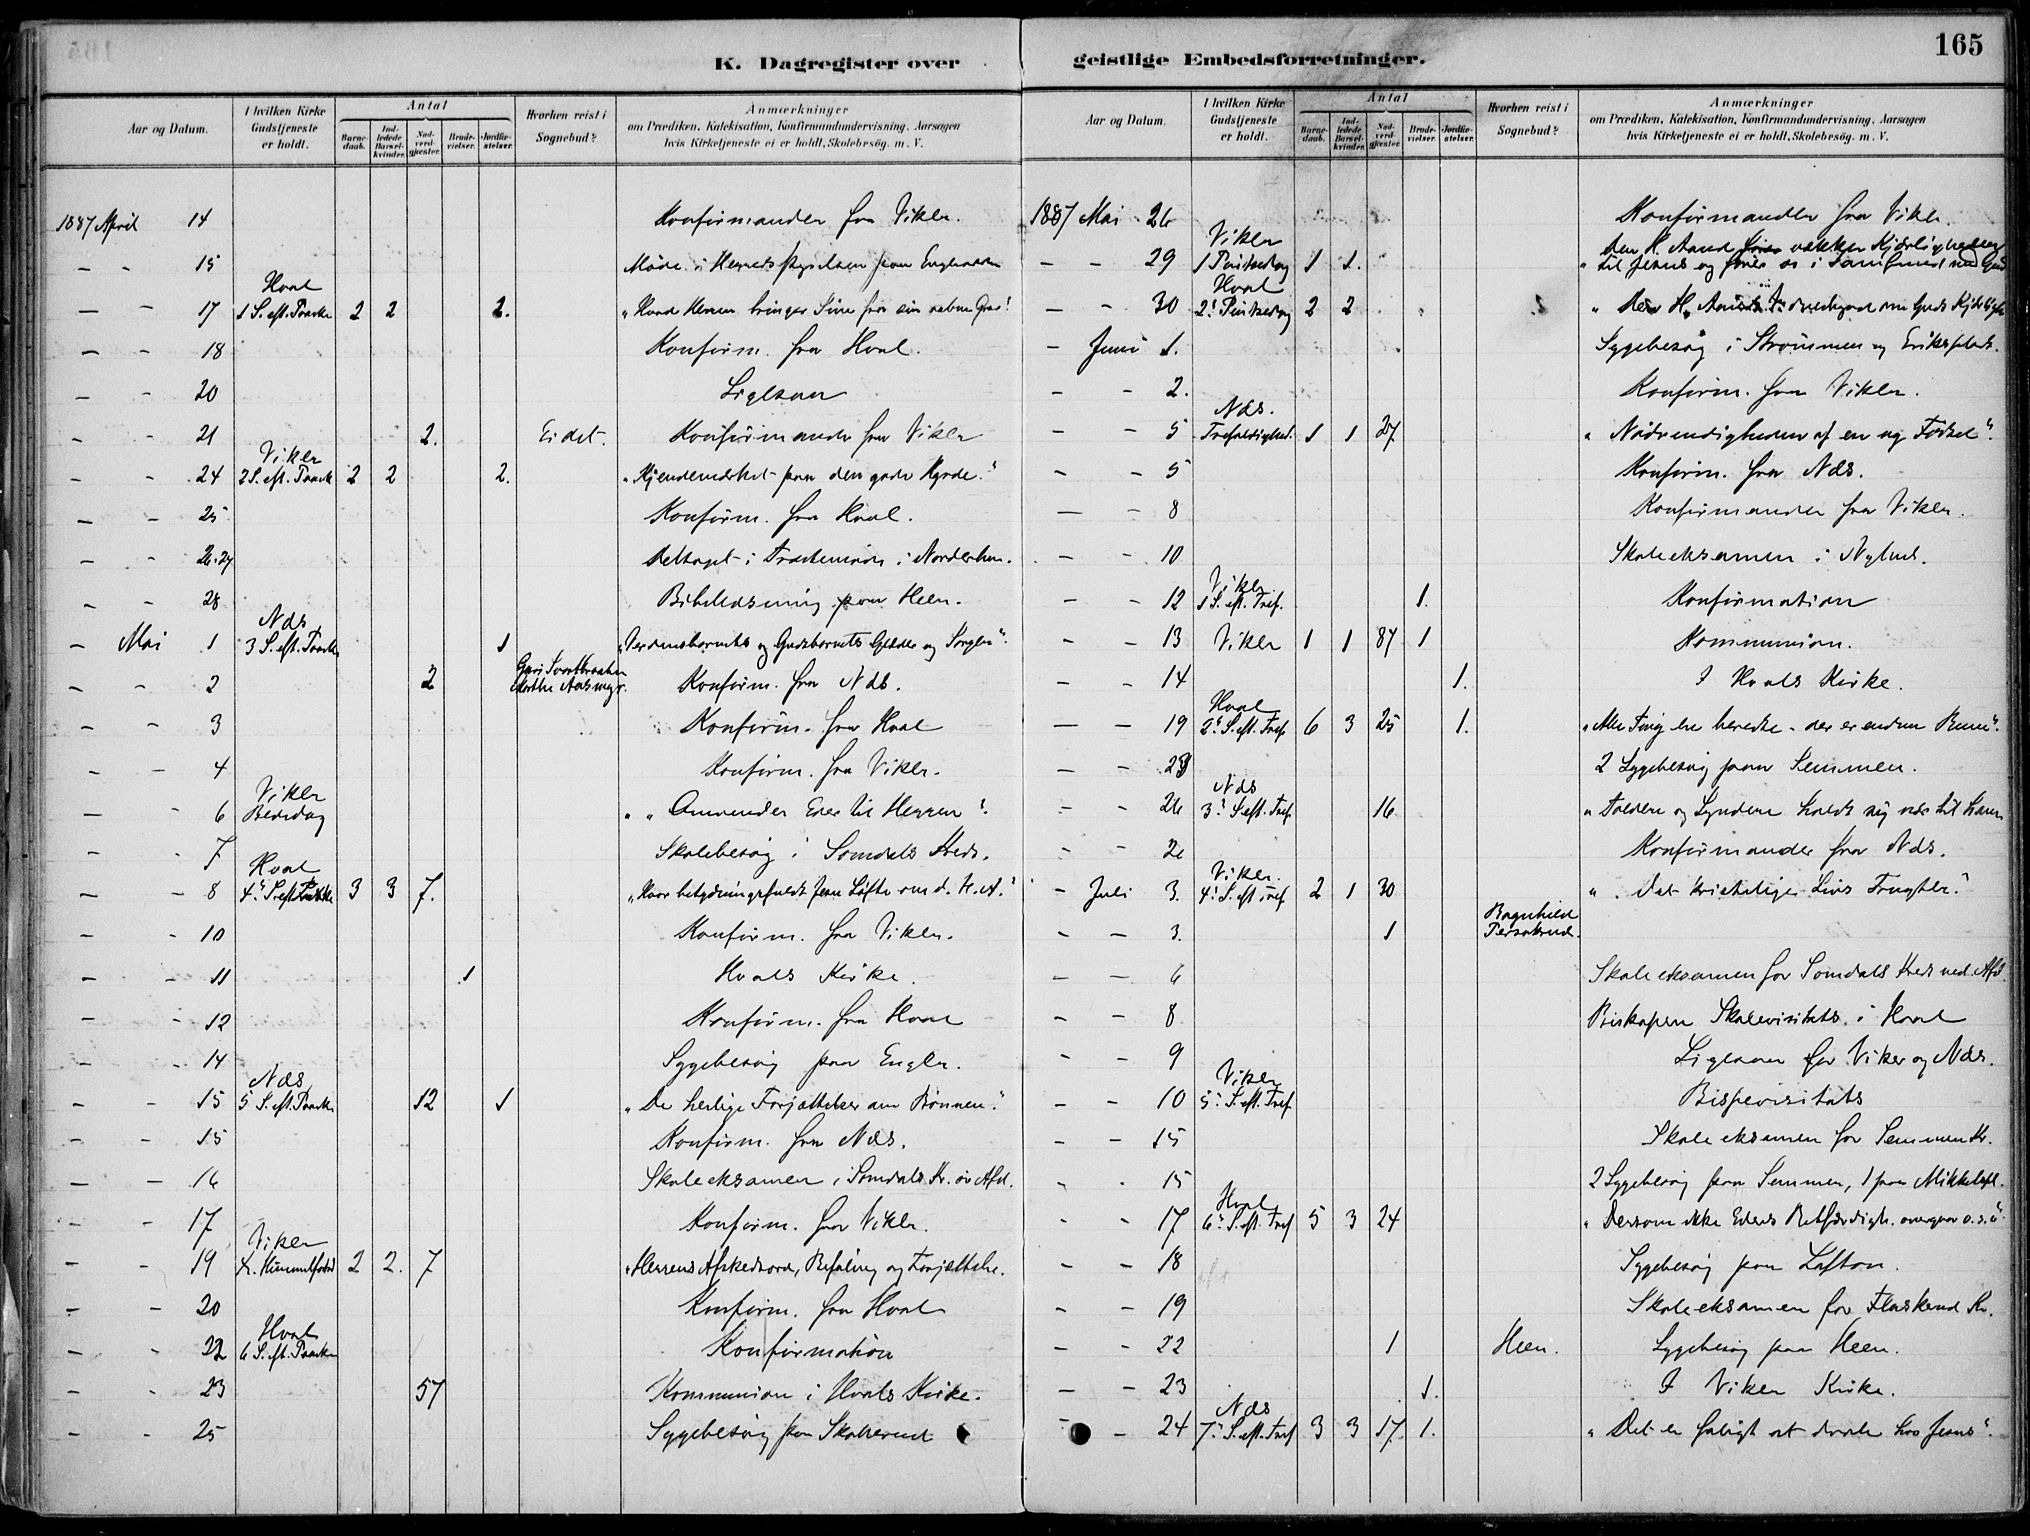 165
K. Dagregister over geistlige Embedsforretninger.
Aar og Datum.
I hvilken Kirke Gudstjeneste er holdt.
Antal
Barnedaab.
Indledede Barselkvinder.
Nadverdgjester.
Brudevielser.
Jordfæstelser.
Hvorhen reist i Sognebud?
Anmærkninger
om Prædiken, Katekisation, Konfirmandundervisning, Aarsagen
hvis Kirketjeneste ei er holdt, Skolebesøg, m. V.
1887 April 14 Konfirmander fra Viker.
- - 15 Møde i
- - 17 Hval 1 S. eft. Paaske 2 2 2. "Hvad Herren bringer Sine fra sin aabne Grav"
- - 18 Konfirm. fra Hval.
- - 20 Ligtaler
- - 21 2. Eidet. Konfirmander fra Viker
- - 24 Viker 2 S. eft. Paaske 2 2 2. "Kjendemærket paa den gode Hyrde."
- - 25 Konfirm. fra Hval.
- - 26-27 Deltaget i i Norderhov.
- - 28 Bibellæsning paa Heen.
- Mai 1 Næs 3 S. eft. Paaske 1 "Verdensbarnets og Gudsbarnets Glæder og Sorger".
- - 2 2 Konfirm. fra Næs.
- - 3 Konfirm. fra Hval
- - 4 Konfirm. fra Viker.
- - 6 Viker Bededag " "Omvender Eder til Herren".
- - 7 Skolebesøg i Somdals Kreds.
- - 8 Hval 4. S. eft. Paaske 3 3 7. "Hvor betydningsfuldt Jesu Løfte om d. H. A."
- - 10 Konfirm. fra Viker.
- - 11 1 Hvals Kirke.
- - 12 Konfirm. fra Hval
- - 14 Sygebesøg paa Enger.
- - 15 Næs 5 S. eft. Paaske 12 1 "De herlige Forjættelser om Bønnen."
- - 15 Konfirm. fra Næs.
- - 16 Skoleeksamen i Somdals Kr. øv. Afd.
- - 17 Konfirm. fra Viker.
- - 19 Viker Kr. Himmelfartsd 2 2. 7 "Herrens Afskedsord, Befaling og Forjættelse.
- - 20 Konfirm. fra Hval
- - 22 Hval 6 S. eft. Paaske Konfirmation
- - 23 57 Kommunion i Hvals Kirke.
- - 25 Sygebesøg paa
Aar og Datum.
I hvilken Kirke Gudstjeneste er holdt.
Antal
Barnedaab.
Indledede Barselkvinder.
Nadverdgjester.
Brudevielser.
Jordfæstelser.
Hvorhen reist i Sognebud?
Anmærkninger
om Prædiken, Katekisation, Konfirmandundervisning, Aarsagen
hvis Kirketjeneste ei er holdt, Skolebesøg, m. V.
1887 Mai 26 Konfirmander fra Viker
- - 29 Viker 1 Pintsedag 1 1. "Den H. Aand vækker Kjærligheden til Jesus og fører os i Samfund med Gud
- - 30 Hval 2. Pintsedag 2 2 "Den H. Aands om Guds Kjærlighed
- Juni 1. Sygebesøg i Strømmen og Eriksplads.
- - 2. Konfirm. fra Viker.
- - 5 Næs. Trefoldighed. 1 1 27 "Nødvendigheden af en ny Fødsel".
- - 5 Konfirm. fra Næs.
- - 8 Konfirmander fra Viker.
- - 10 Skoleeksamen i
- - 12 Viker 1 S. eft. Tref. 1. Konfirmation
- - 13 Viker 1 1 87 1 Kommunion.
- - 14 1. I Hvals Kirke.
- - 19 Hval 2. S. eft. Tref. 6 3 25 1. "Alle Ting ere beredte - der er endnu Rum".
- - 23 2 Sygebesøg paa Semmen.
- - 26 Næs 3. S. eft. Tref. 16 "Toldere og Syndere holdt sig nær til ham
- - 26 Konfirmander fra Næs.
- Juli 3. Viker. 4. S. eft. Tref. 2 1 30 "Det kristelige Livs Frugter."
- - 3. 1 Ragnhild
- - 6 Skoleeksamen for Somdals Kreds ned. Afd.
- - 8 Biskopens Skolevisitats i Hval
- - 9 Ligtaler for Viker og Næs.
- - 10 Viker 5. S. eft. Tref. Bispevisitats
- - 15 Skoleeksamen for Semmen Kr.
- - 15 2 Sygebesøg paa Semmen, 1 paa
- - 17 Hval 6. S. eft. Tref 5 3 24 "Dersom ikke Eders Retfærdigh. overgaar o.s.v."
- - 18 Sygebesøg paa
- - 19 Skoleeksamen for Flaskerud Kr.
- - 22 1 Heen. Sygebesøg paa Heen.
- - 23 1. I Viker Kirke.
- - 24 Næs 7. S. eft. Tref 3 3 17. 1. "Det er saligt at dvæle hos Jesus".